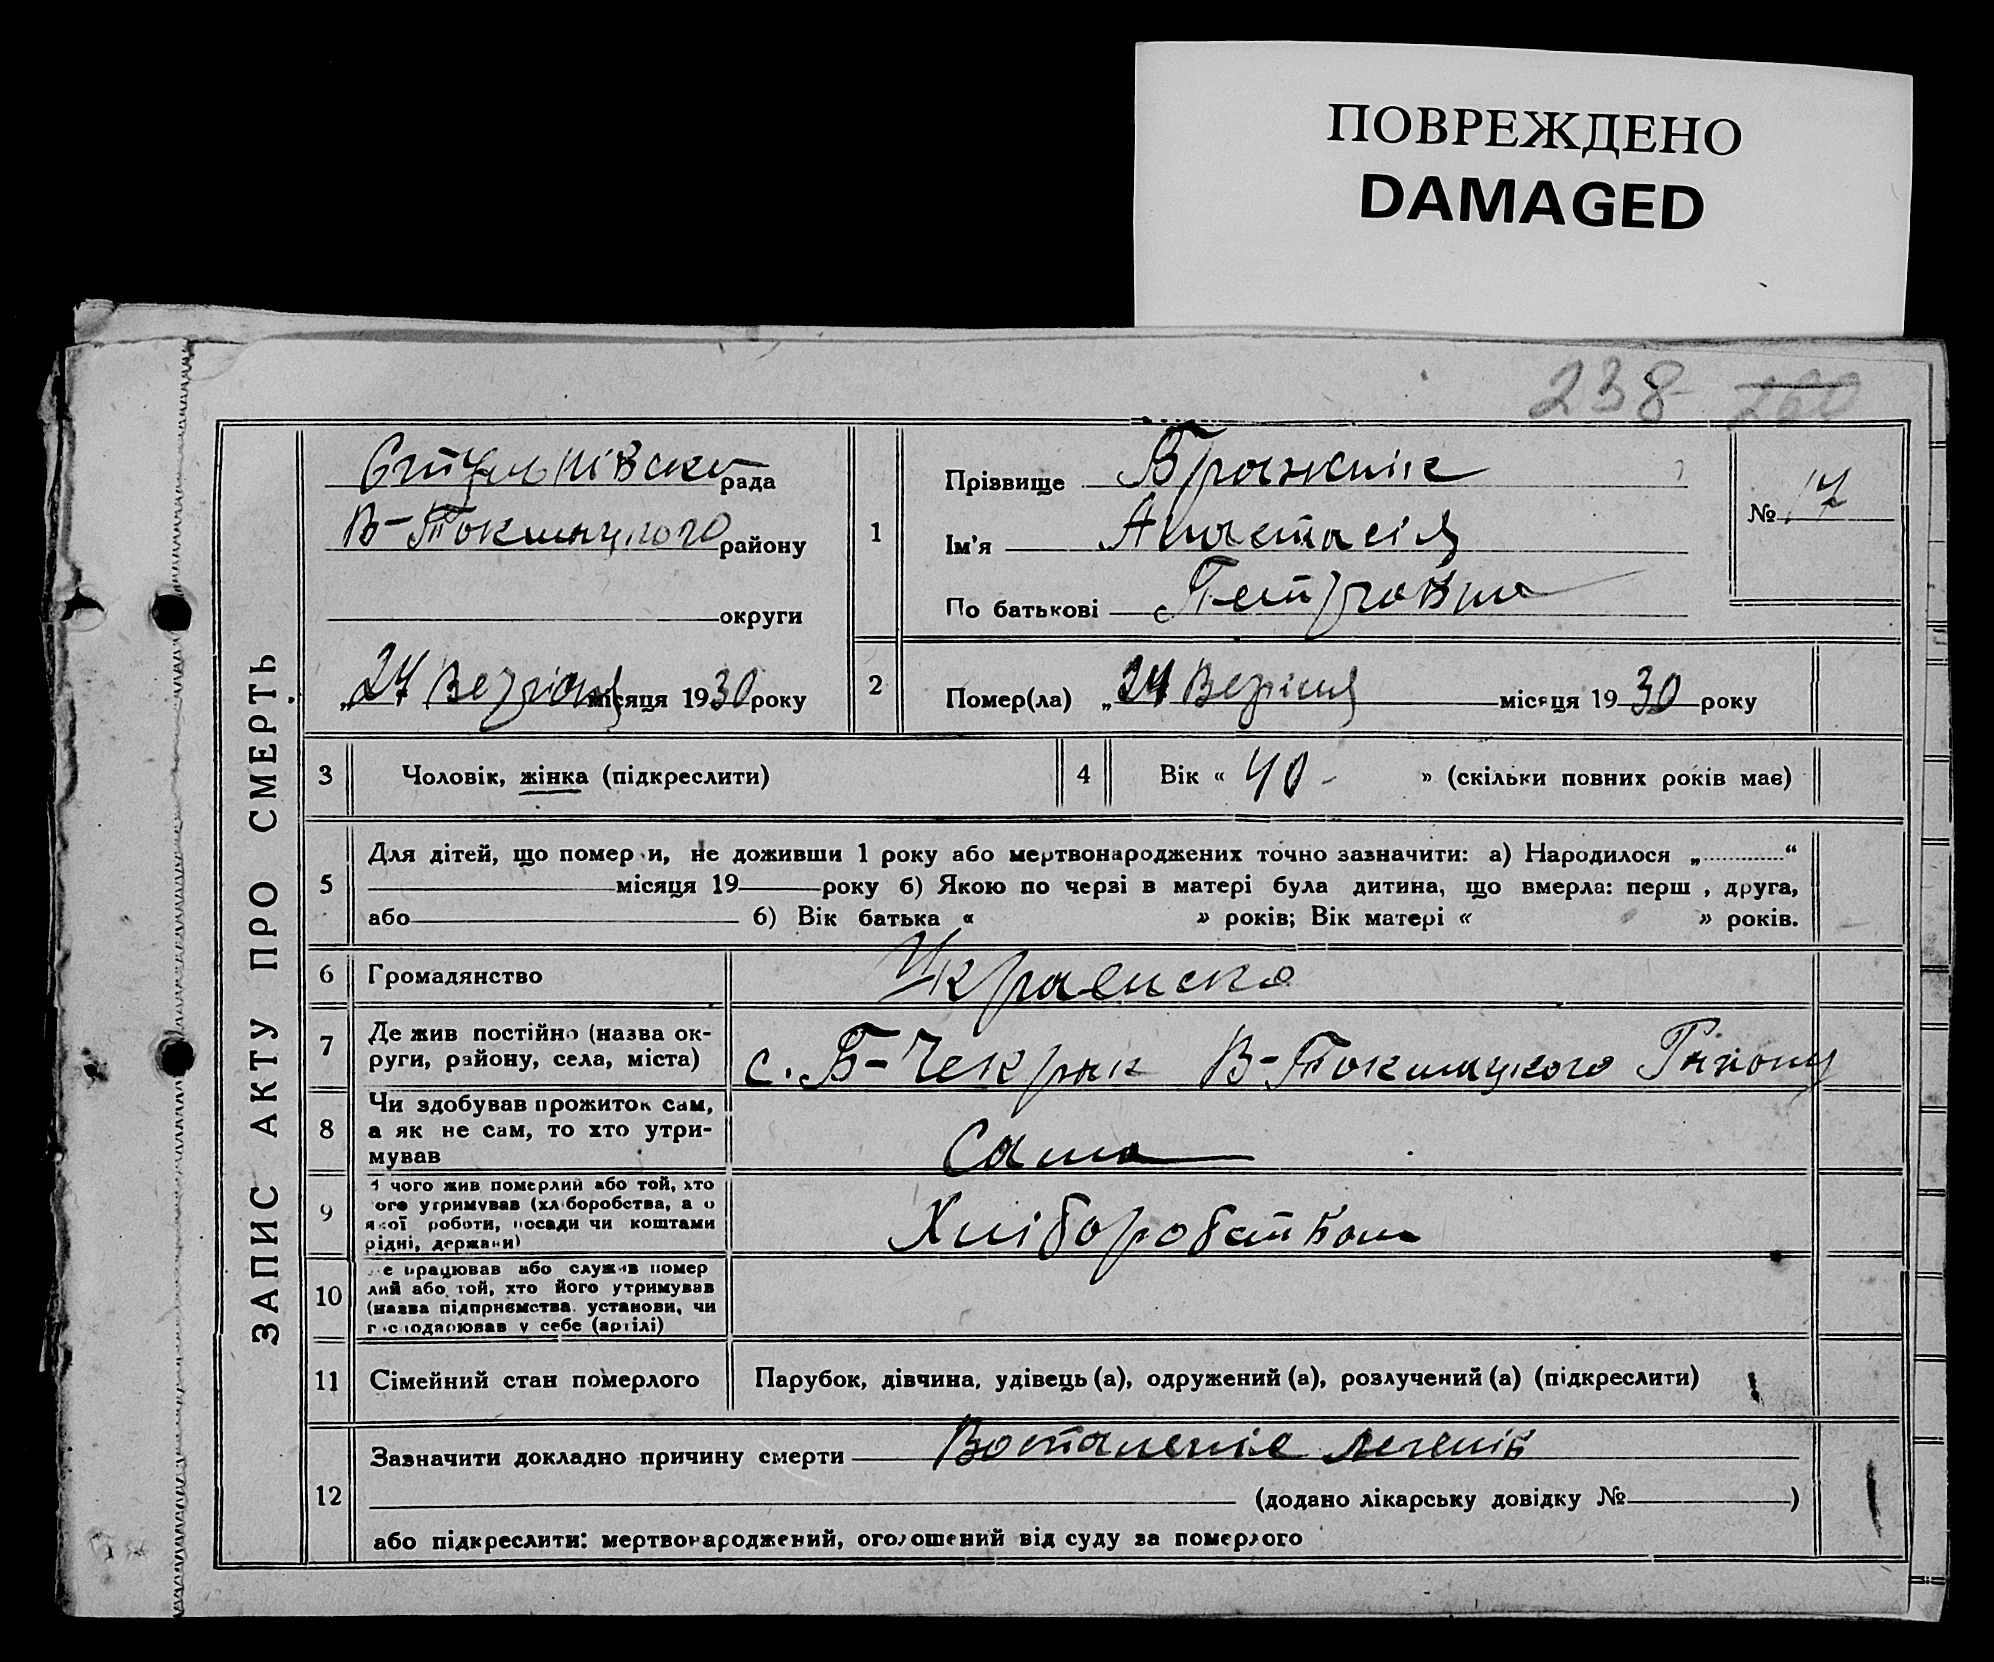 ПОВРЕЖДЕНО
DAMAGED
238 260
ЗАПИС АКТУ ПРО СМЕРТЬ
рада
В-Токмацького району
округи
„27 Верісня місяця 1930 року
1
Прізвище Бражник
Ім'я Анастасія
По батькові Петровна
№ 17
2
Помер(ла) „24 Верісня місяця 1930 року
3 Чоловік, жінка (підкреслити)
4 Вік « 40 - » (скільки повних років має)
5
Для дітей, що померли, не доживши 1 року або мертвонароджених точно зазначити: а) Народилося „ “
місяця 19 року б) Якою по черзі в матері була дитина, що вмерла: перш , друга,
або б) Вік батька « » років; Вік матері « » років.
6 Громадянство Украенска
7 Де жив постійно (назва ок-
руги, району, села, міста) с. Б-Чекрак В-Токмацкого Району
8 Чи здобував прожиток сам,
а як не сам, то хто утри-
мував Сама
9 З чого жив померлий або той, хто
його утримував (хліборобства, а о
якої роботи, посади чи коштами
рідні, держави) Хліборобством
10 Де працював або служив помер
лий або той, хто його утримував
(назва підприємства, установи, чи
господарював у себе (артілі)
11 Сімейний стан померлого Парубок, дівчина, удівець (а), одружений (а), розлучений (а) (підкреслити)
12 Зазначити докладно причину смерти Воспаленіе легенів
(додано лікарську довідку № )
або підкреслити: мертвонароджений, оголошений від суду за померлого